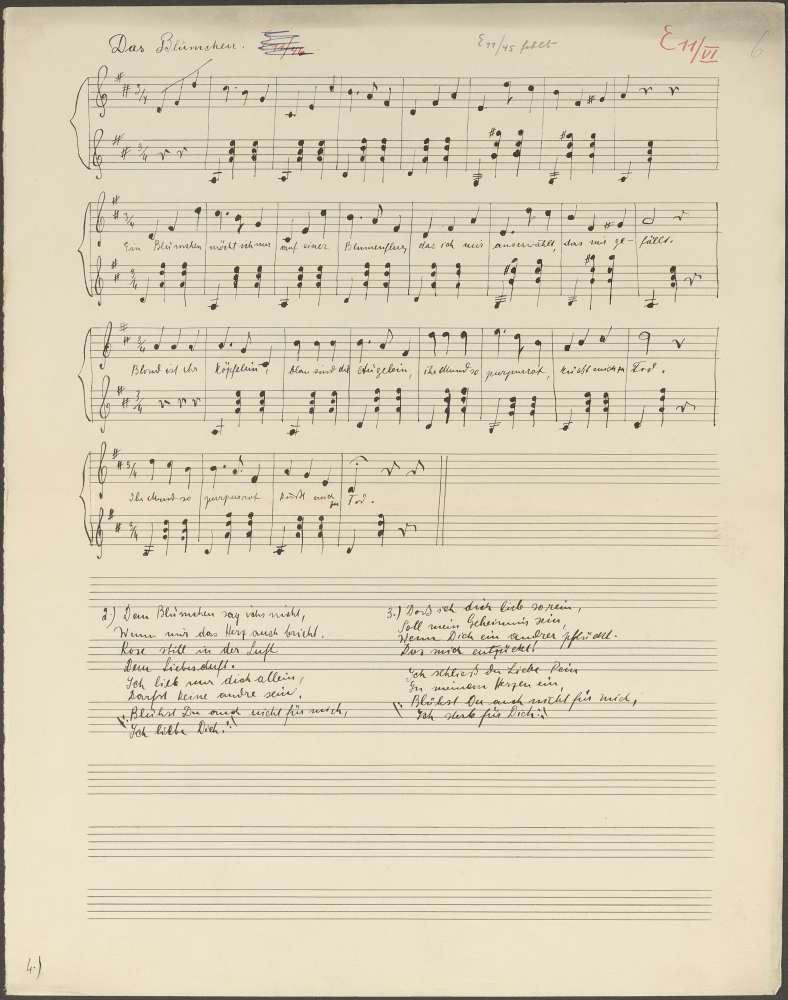 Das Blümchen.
E 11/45 fehlt
E 11/VI
6
3/4
3/4
3/4
Ein Blümchen möcht ich nur auf einer Blumenflur, das ich mir auserwählt, das mir ge- fällt.
3/4
3/4
Blond ist ihr Köpfelein, blau sind die Äugelein, ihr Mund so purpurrot, küsst mich zu Tod.
3/4
3/4
Ihr Mund so purpurrot küsst mich zu Tod.
3/4
2.) Dem Blümchen sag ichs nicht,
Wenn mir das Herz auch bricht.
Rose still in der Luft
Dem Liebesduft.
Ich lieb nur dich allein,
Darfst keine andre sein.
Blühst Du auch nicht für mich,
Ich liebe Dich!
3.) Daß ich dich lieb so rein,
Soll mein Geheimnis sein,
Wenn Dich ein andrer pflückt.
Das mich entzückt
Ich schließ der Liebe Pein
In meinem Herzen ein,
Blühst Du auch nicht für mich,
Ich sterb für Dich!
4.)